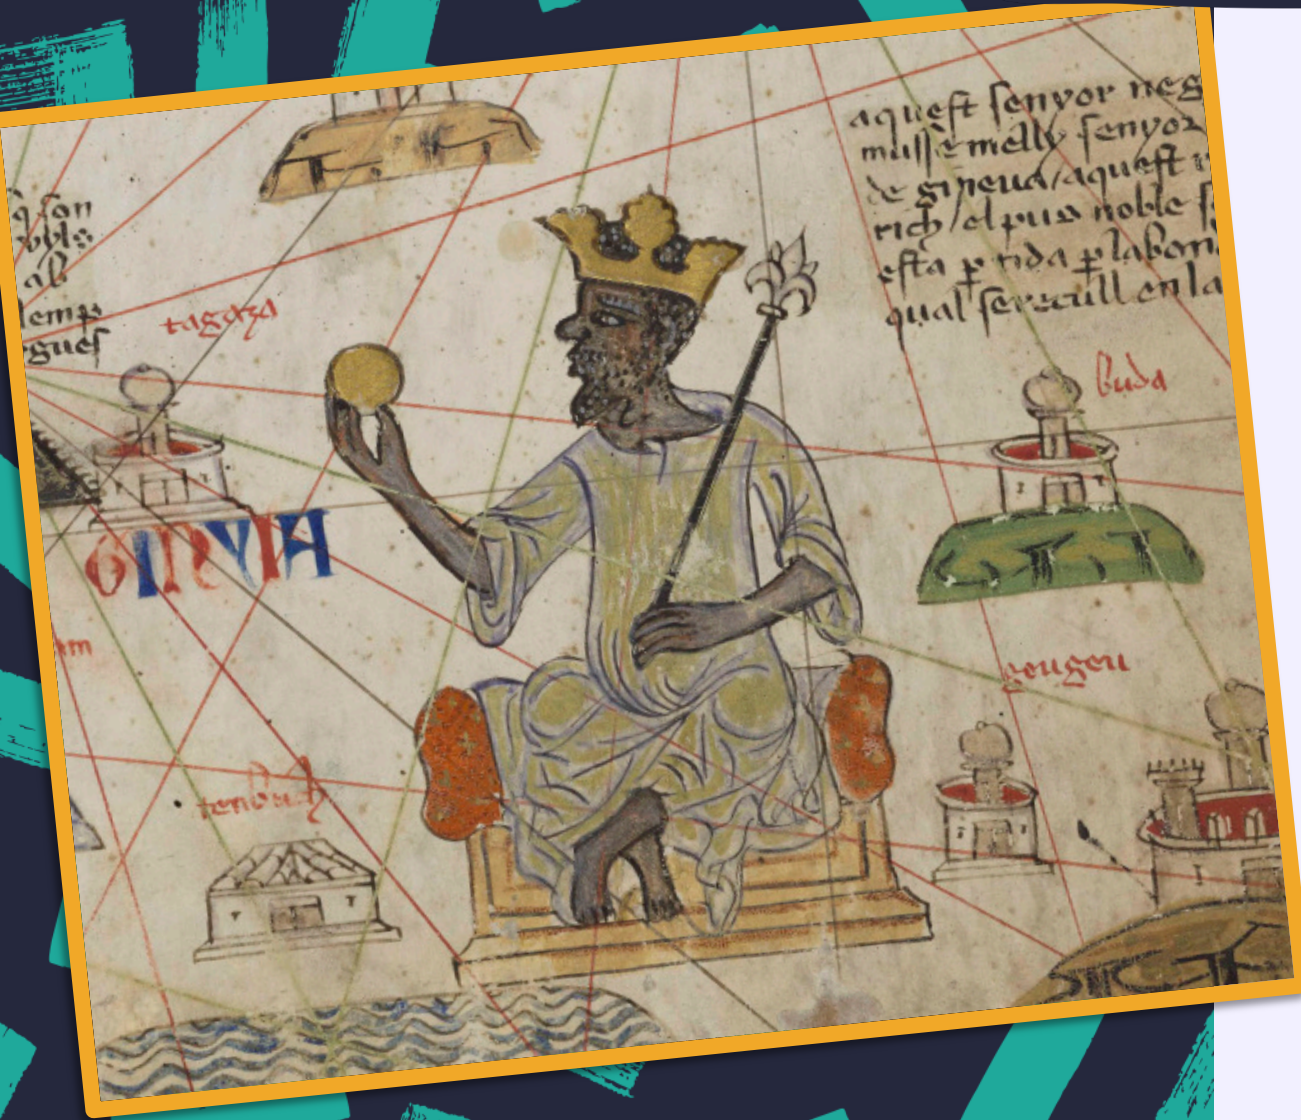 aquest senyor neg
musse melly senyor
de gineua aquest
rich el pus noble
esta ptida p labon
qual se recull en la
q son
ab
lemp
gues
tagaza
buda
GINYIA
geugeu
tenbuch